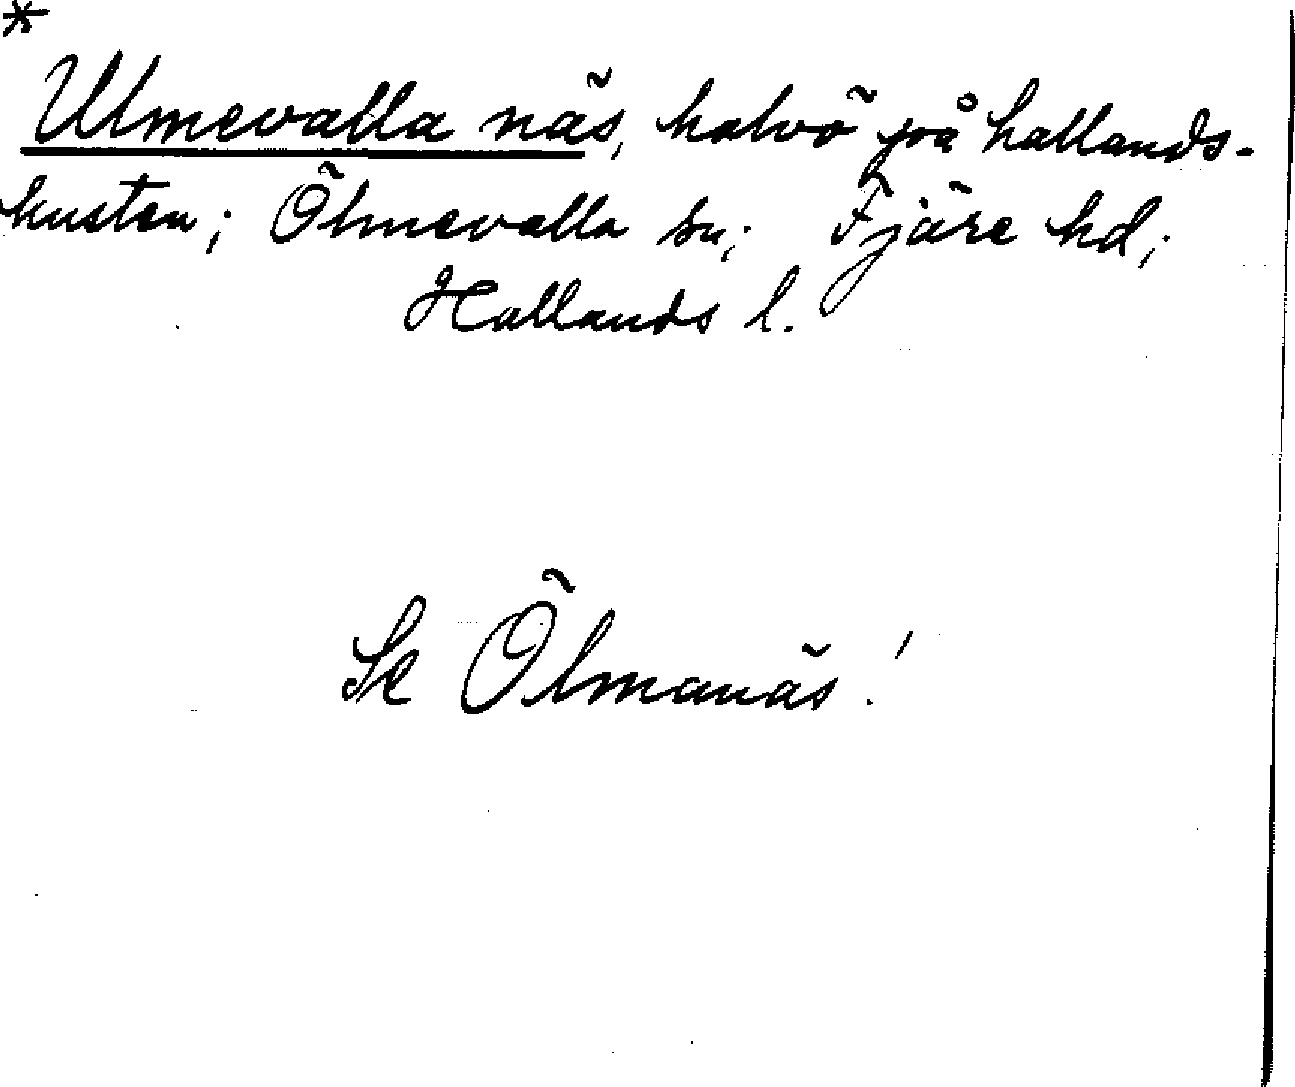 *
Ulmevalla näs, halvö på hallands-
kusten; Ölmevalla sn; Fjäre hd;
Hallands l.
Se Ölmanäs!